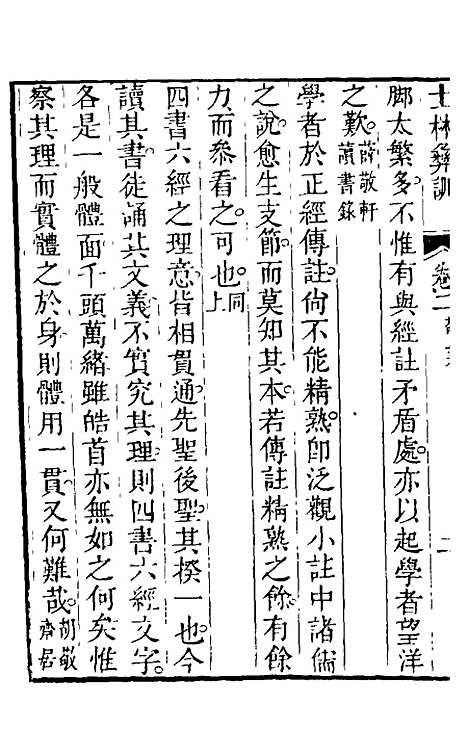 士林彝訓 卷二 二
脚太繁多不惟有與經註矛盾處亦以起學者望洋
之歎薛敬軒讀書錄
學者於正經傳註尙不能精熟卽泛觀小註中諸儒
之說愈生支節而莫知其本若傳註精熟之餘有餘
力而叅看之可也同上
四書六經之理意皆相貫通先聖後聖其揆一也今
讀其書徒誦其文義不實究其理則四書六經文字
各是一般體面千頭萬緒雖皓首亦無如之何矣惟
察其理而實體之於身則體用一貫又何難哉胡敬齋居